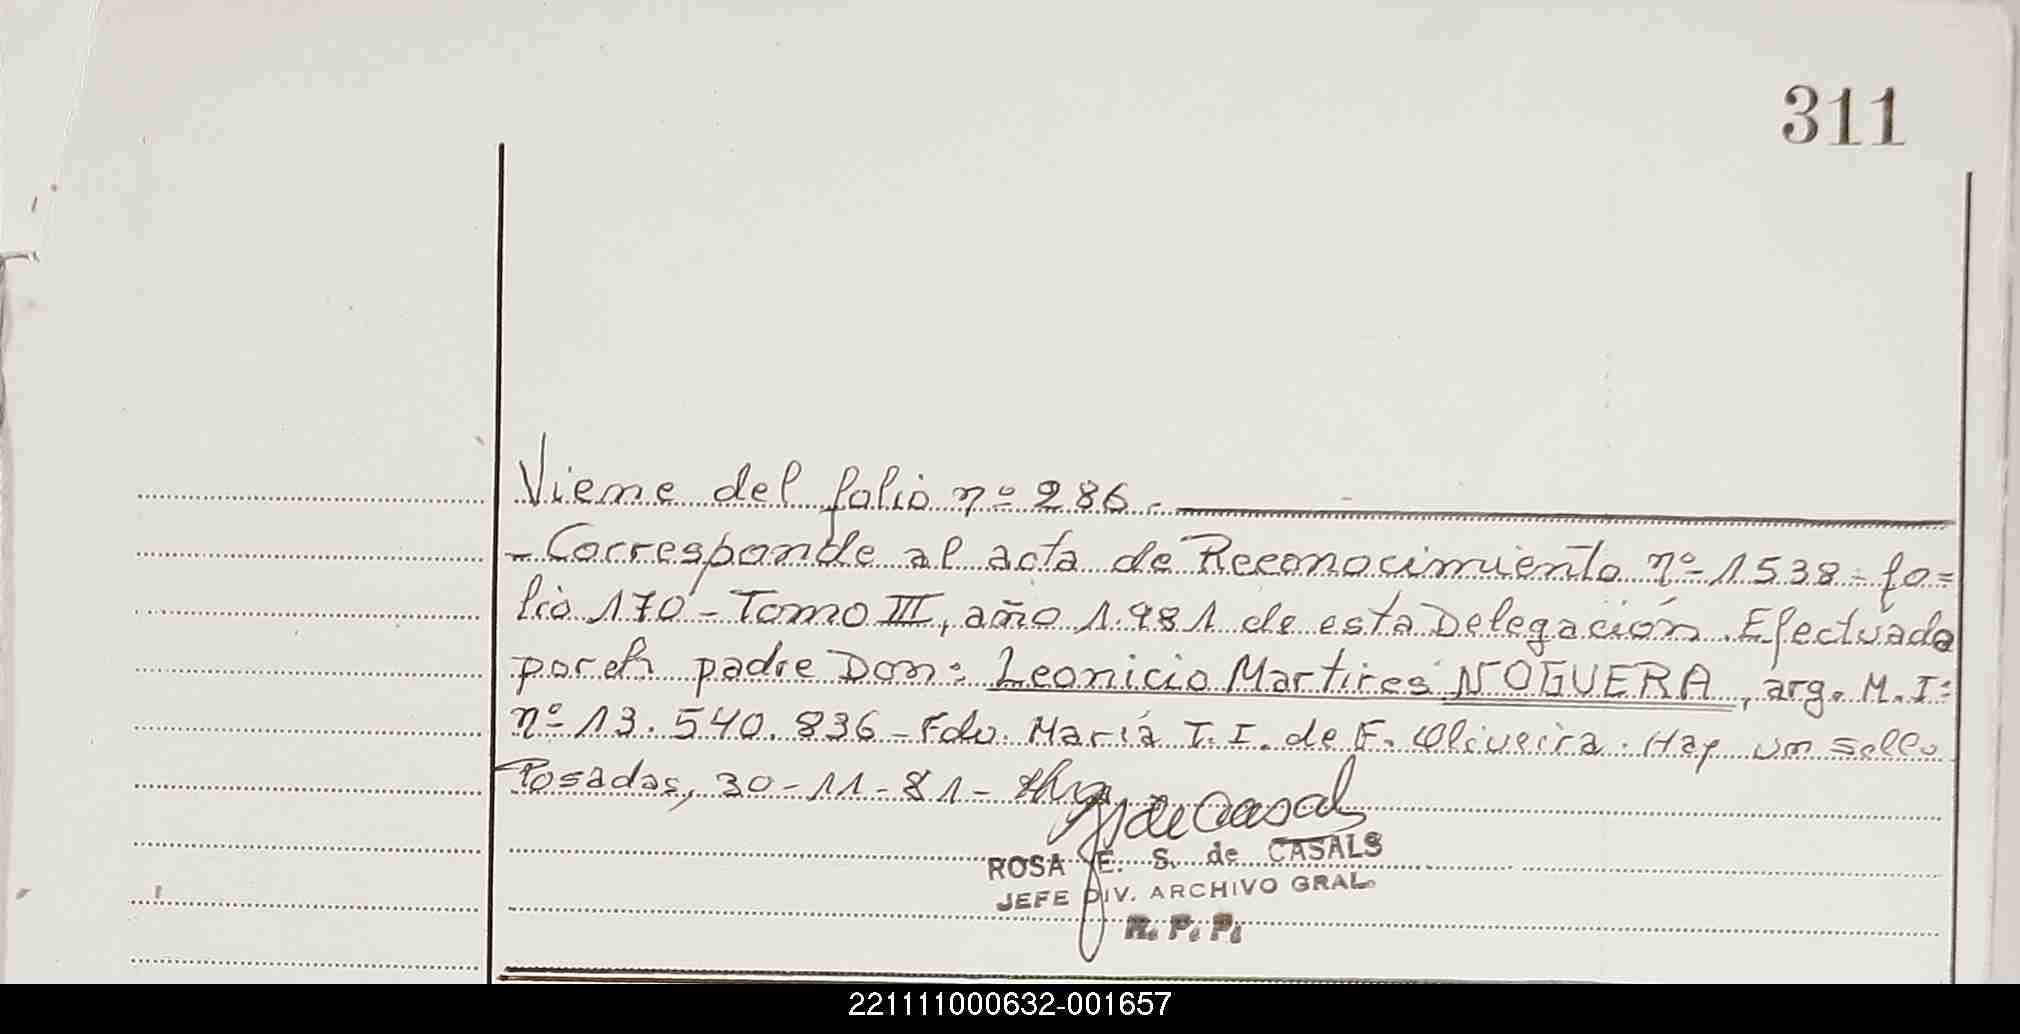 311
Viene del folio nº 286.-
- Corresponde al acta de Reconocimiento nº 1538 - fo=
lio 170 - Tomo III, año 1.981 de esta Delegación. Efectuada
por el padre Don: Leonicio Martires NOGUERA, arg. M.I:
nº 13.540.836 - Fdo. María I. I. de F. Oliveira. Hay un sello
Posadas, 30-11-81-
de Casals
ROSA E. S. de CASALS
JEFE DIV. ARCHIVO GRAL.
R. P. P.
221111000632-001657